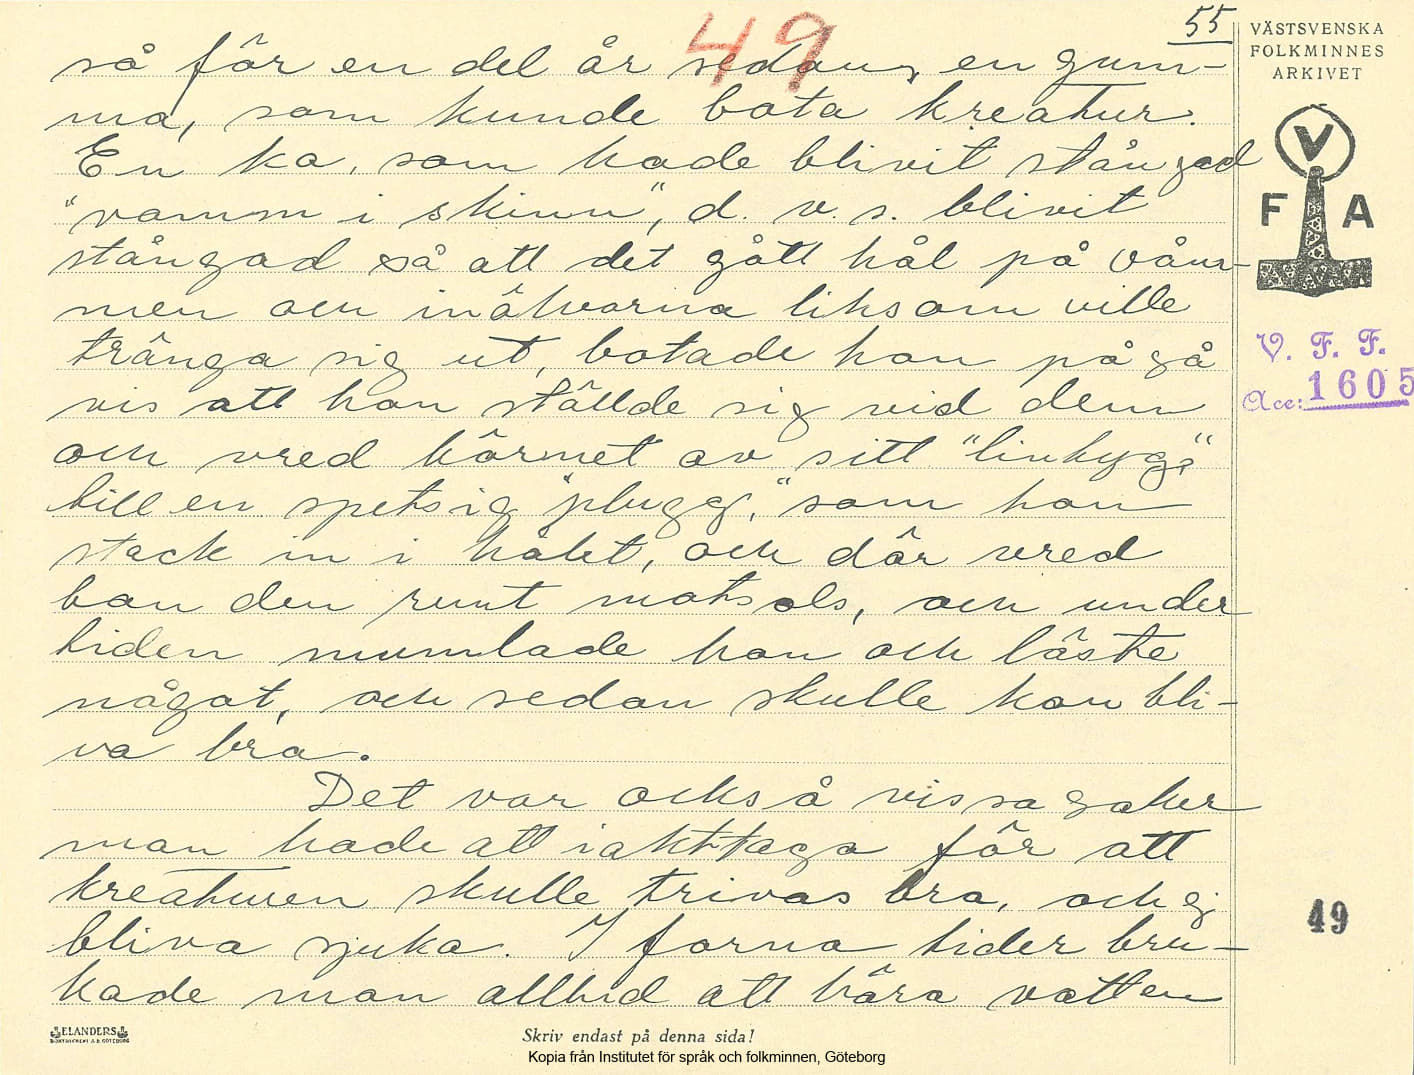 55
49
VÄSTSVENSKA
FOLKMINNES
ARKIVET
V
F A
V. F. F.
Acc: 1605
så för en del år sedan, en gum-
ma, som kunde bota kreatur.
En ko, som hade blivit stångad
"vamm i skinn", d. v. s. blivit
stångad så att det gått hål på våm-
men och inälvorna liksom ville
tränga sig ut, botade hon på så
vis att hon ställde sig vid den
och vred hörnet av sitt "linhygg"
till en spetsig "plugg", som hon
stack in i hålet, och där vred
hon den runt motsols, och under
tiden mumlade hon och läste
något, och sedan skulle kon bli-
va bra.
Det var också vissa saker
man hade att iakttaga för att
kreaturen skulle trivas bra, och ej
bliva sjuka. I forna tider bru-
kade man alltid att bära vatten
49
ELANDERS
BOKTRYCKERI A.B. GÖTEBORG
Skriv endast på denna sida!
Kopia från Institutet för språk och folkminnen, Göteborg